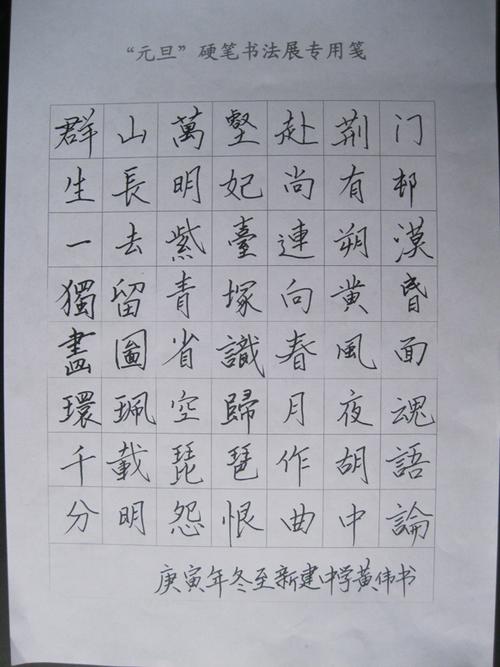 “元旦”硬笔书法展专用笺
群山萬壑赴荆门
生長明妃尚有邨
一去紫臺連朔漠
獨留青塚向黄昏
畫圖省識春風面
環珮空歸月夜魂
千載琵琶作胡語
分明怨恨曲中論
庚寅年冬至新建中学黄伟书